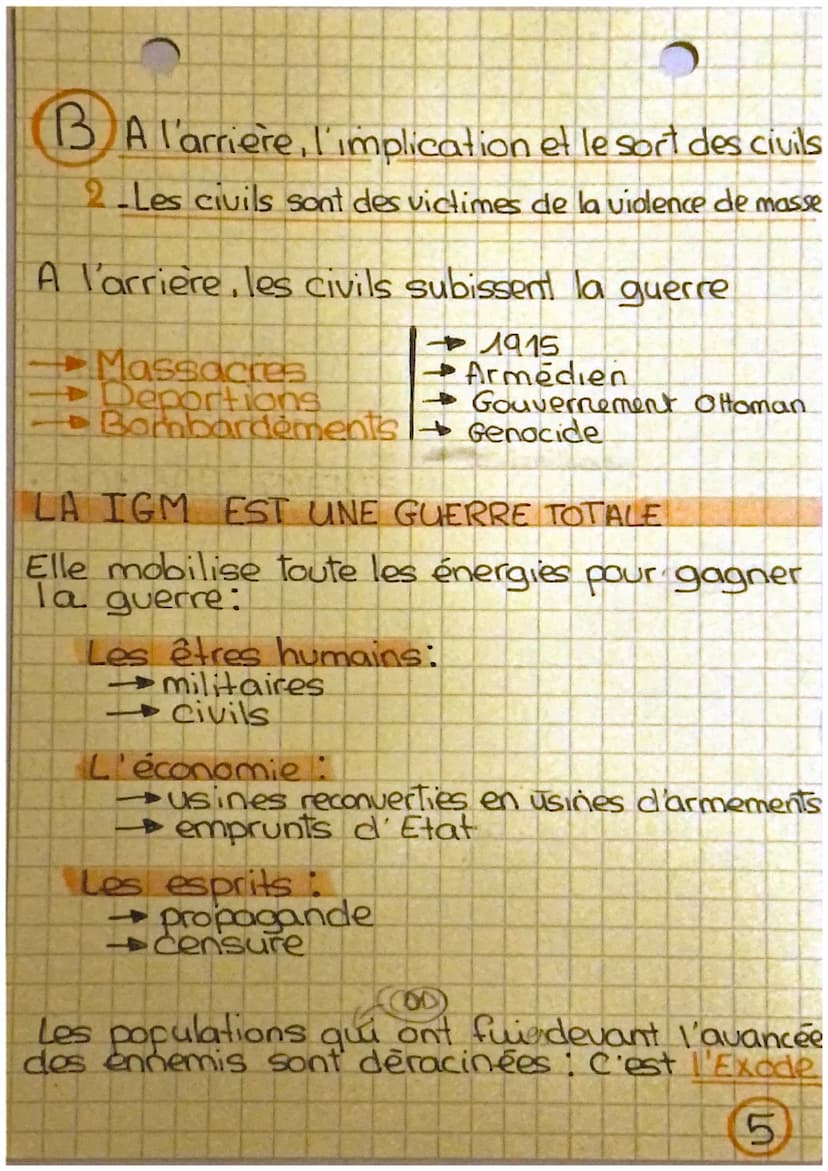 B A l'arrière, l'implication et le sort des civils
2 - Les civils sont des victimes de la violence de masse
A l'arrière, les civils subissent la guerre
→ Massacres
→ Déportions
→ Bombardements
→ 1915
→ Armédien
→ Gouvernement Ottoman
→ Genocide
LA IGM EST UNE GUERRE TOTALE
Elle mobilise toute les énergies pour gagner
la guerre:
Les êtres humains:
→ militaires
→ civils
L'économie :
→ usines reconverties en usines d'armements
→ emprunts d'Etat
Les esprits :
→ propagande
→ censure
Les populations qui ont fuie devant l'avancée
des ennemis sont déracinées : C'est l'Exode
5